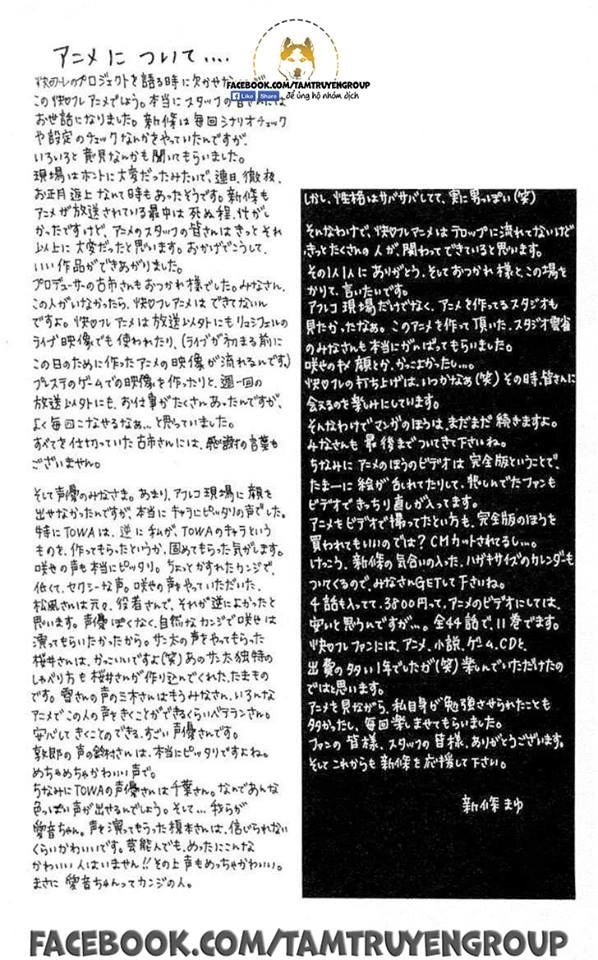 アニメに ついて....
FACEBOOK.COM/TAMTRUYENGROUP
Like Share để ủng hộ nhóm dịch
快カレのプロジェクトを語る時に欠かせない
この快カレアニメでしょう。本当にスタッフの皆さんには
お世話になりました。新條は毎回シナリオチェック
や設定のチェックなんかをやっていたんですが、
いろいろと意見なんかも聞いてもらいました。
現場はホントに大変だったみたいで、連日、徹夜、
お正月返上なんて時もあったそうです。新條も
アニメが放送されている最中は死ぬ程、忙がし
かったですけど、アニメのスタッフの皆さんはきっとそれ
以上に大変だったと思います。おかげでこうして、
いい作品ができあがりました。
プロデューサーの古市さんもおつかれ様でした。みなさん、
この人がいなかったら、快カレアニメはできてないん
ですよ。快カレアニメは放送以外にもリュシフェルの
ライブ映像でも使われたり、(ライブが初まる前に
この日のために作ったアニメの映像が流れるんです。)
プレステのゲームでの映像を作ったりと、週一回の
放送以外にも、お仕事がたくさんあったんですが、
よく毎回こなせるなぁ…と思っていました。
すべてを仕切っていた古市さんには、感謝の言葉も
ございません。
そして声優のみなさま。あまり、アフレコ現場に顔を
出せなかったんですが、本当にキャラにピッタリの声でした。
特にTOWAは、逆に私が、TOWAのキャラという
ものを、作ってもらったというか、固めてもらった気がします。
咲也の声も本当にピッタリ。ちょっとかすれたカンジで、
低くて、セクシーな声。咲也の声をやっていただいた、
松風さんは元々、役者さんで、それが逆によかったと
思います。声優ぽくなく、自然なカンジで咲也は
演ってもらいたかったから。サン太の声をやってもらった
桜井さんは、かっこいいですよ(笑)あのサン太独特の
しゃべり方も桜井さんが作り込んでくれた、たまもの
です。雪さんの声の三木さんはもうみなさん、いろんな
アニメでこの人の声をきくことができるくらいベテランさん。
安心してきくことのできる、すごい声優さんです。
敦郎の声の鈴村さんは、本当にピッタリですよね。
めちゃめちゃかわいい声で。
ちなみにTOWAの声優さんは千葉さん。なんであんな
色っぽい声が出せるんでしょう。そして…我らが
愛音ちゃん。声を演ってもらった榎本さんは、信じられない
くらいかわいいです。芸能人でも、めったにこんな
かわいい人はいません!!その上声もめっちゃかわいい。
まさに愛音ちゃんってカンジの人。
しかし、性格はサバサバしてて、実に男っぽい(笑)
そんなわけで、快カレアニメはテロップに流れてないけど
きっとたくさんの人が、関わってできていると思います。
その1人1人にありがとう、そしておつかれ様と、この場を
かりて、言いたいです。
アフレコ現場だけでなく、アニメを作ってるスタジオも
見たかったなぁ。このアニメを作って頂いた、スタジオ雲雀
のみなさんも本当にがんばってもらいました。
咲也のキメ顔とか、かっこよかったし…。
快カレの打ち上げは、いつかなぁ(笑)その時、皆さんに
会えるのを楽しみにしています。
そんなわけでマンガのほうは、まだまだ続きますよ。
みなさんも最後までついてきて下さいね。
ちなみにアニメのほうのビデオは完全版ということで、
たまーに絵が乱れてたりして、悲しんでたファンも
ビデオできっちり直しが入ってます。
アニメをビデオで撮ってたという方も、完全版のほうを
買われてもいいのでは?CMカットされてるし…。
けっこう、新條の気合いの入った、ハガキサイズのカレンダーも
ついてくるので、みなさんGETして下さいね。
4話も入ってて、3800円って、アニメのビデオにしては、
安いと思うんですが…。全44話で、11巻でます。
快カレファンには、アニメ、小説、ゲーム、CDと、
出費の多い1年でしたが(笑)楽しんでいただけたの
ではと思います。
アニメを見ながら、私自身が勉強させられたことも
多かったし、毎回楽しませてもらいました。
ファンの皆様、スタッフの皆様、ありがとうございます。
そしてこれからも新條を応援して下さい。
新條まゆ
FACEBOOK.COM/TAMTRUYENGROUP